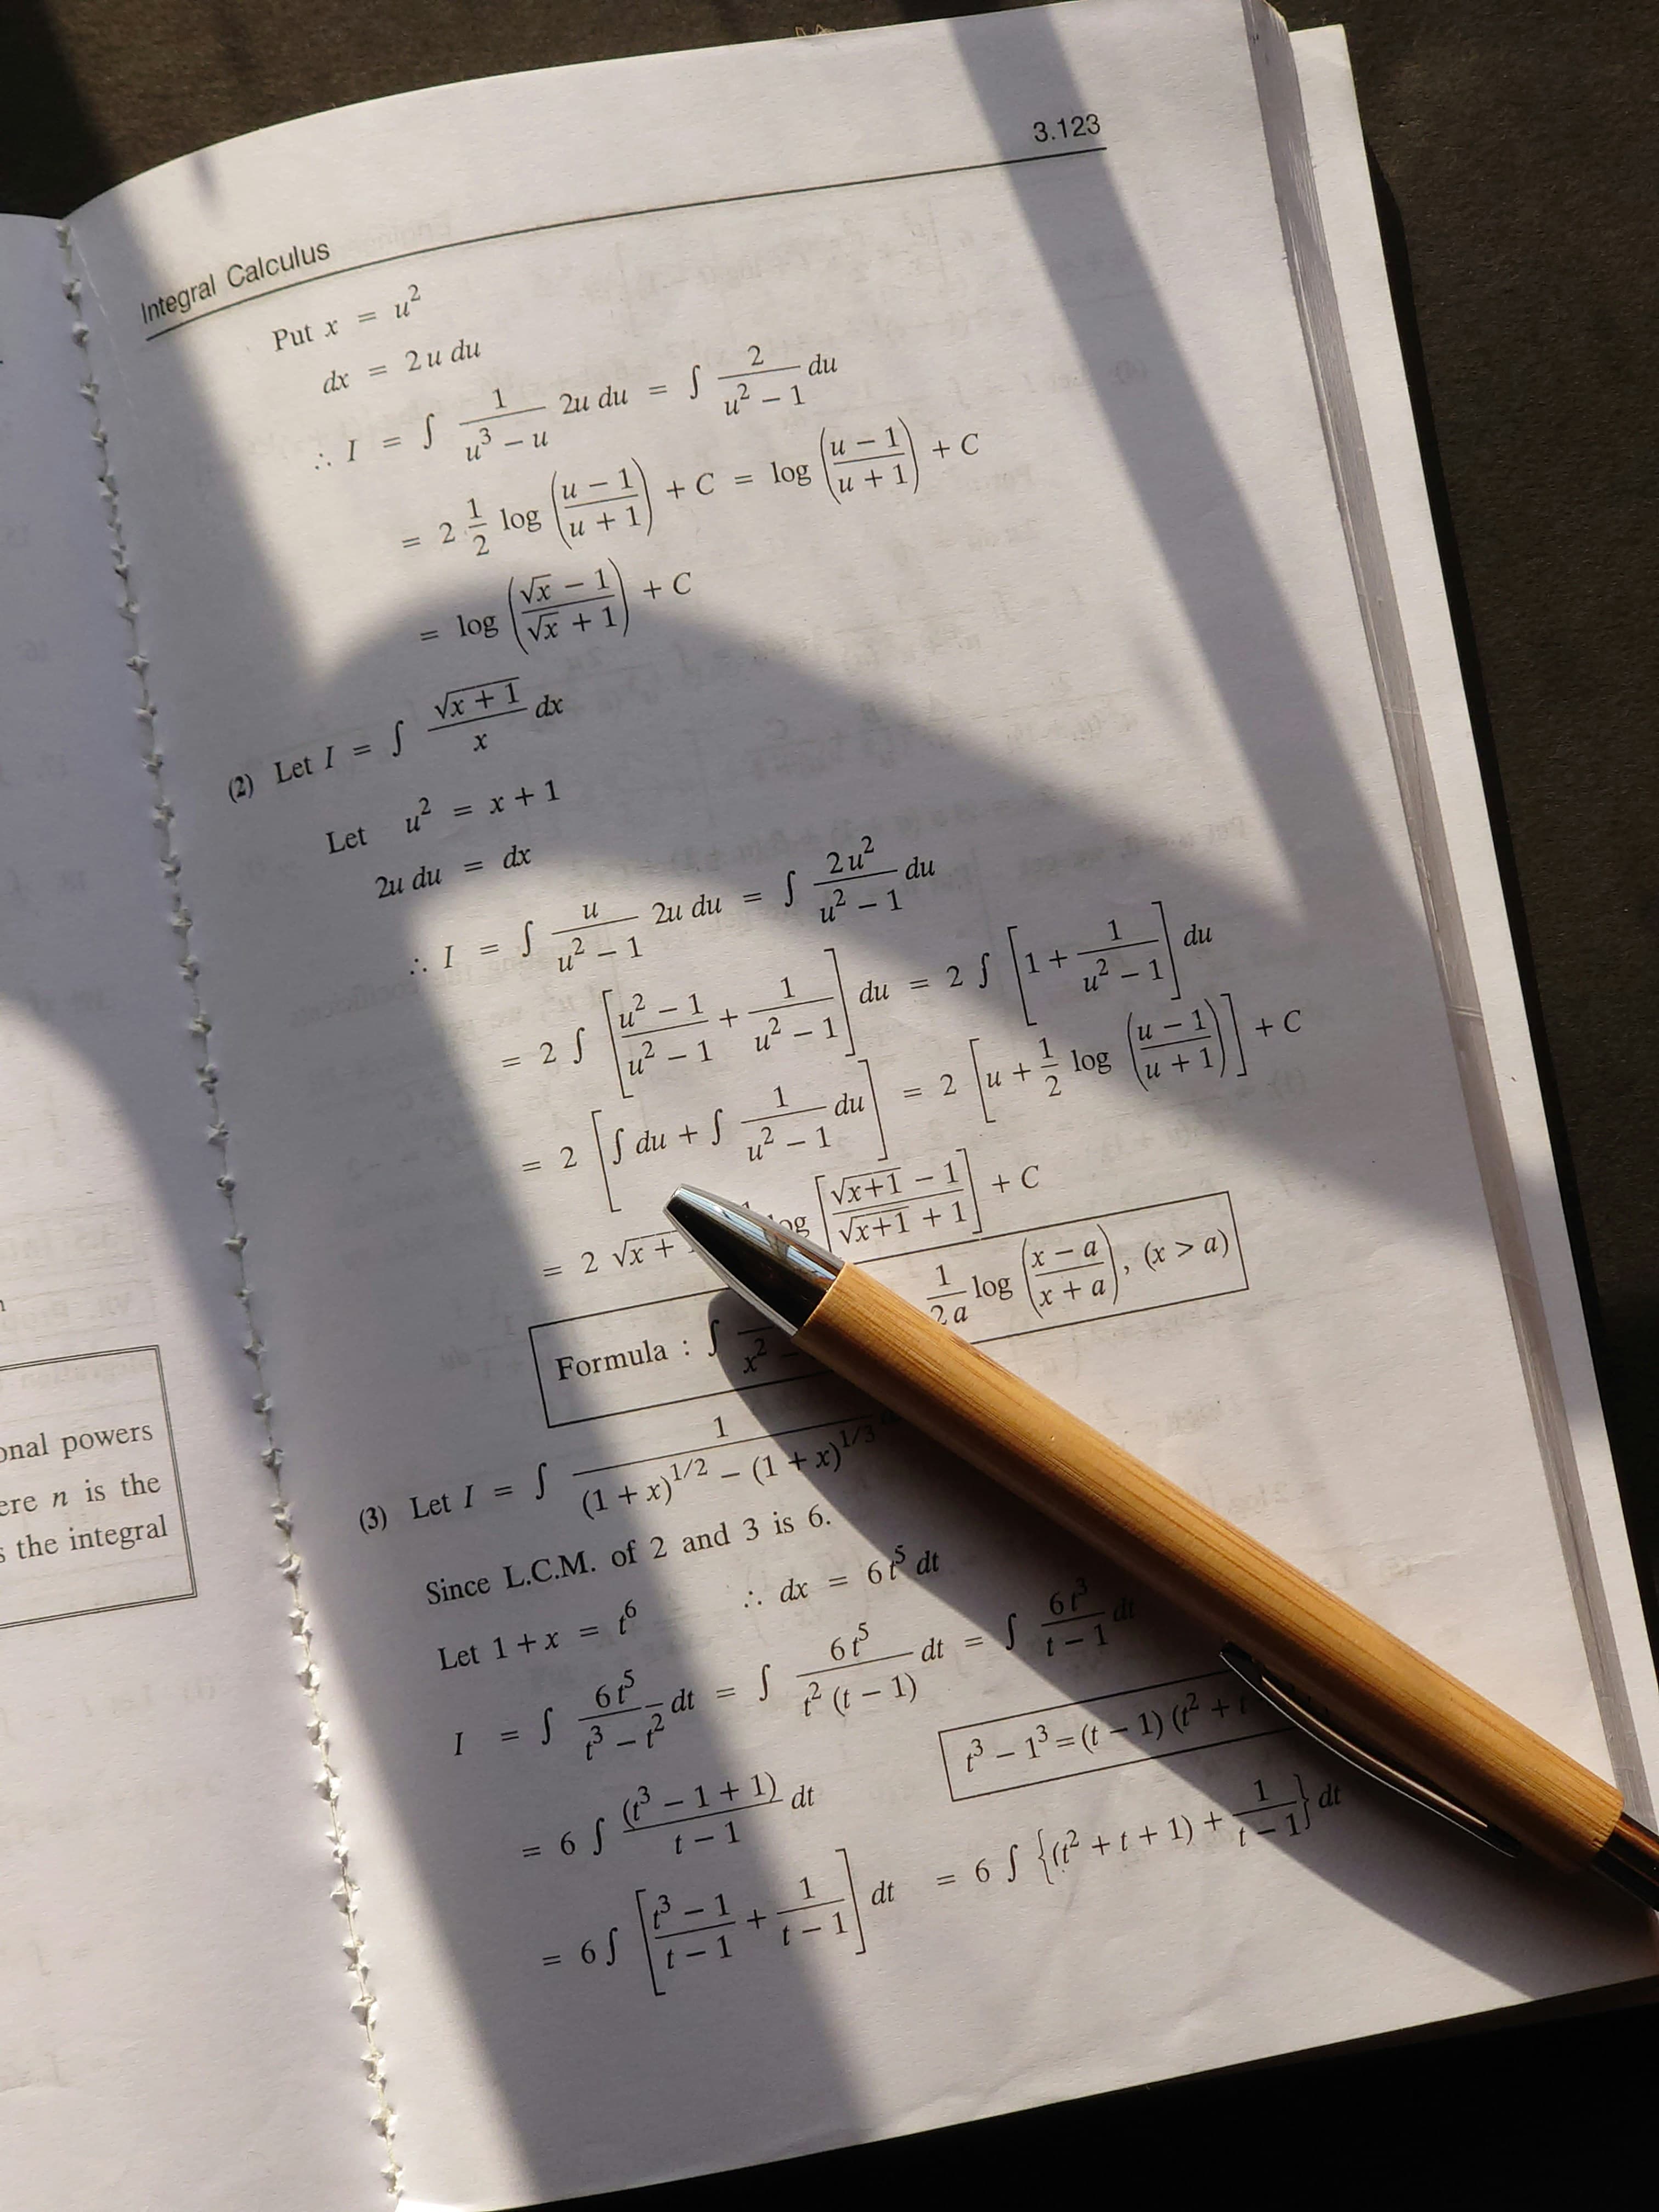 3.123
Integral Calculus
Put x = u²
dx = 2 u du
∴ I = ∫ 1/(u³ − u) 2u du = ∫ 2/(u² − 1) du
= 2 · 1/2 log ((u − 1)/(u + 1)) + C = log ((u − 1)/(u + 1)) + C
= log ((√x − 1)/(√x + 1)) + C
(2) Let I = ∫ √(x + 1)/x dx
Let u² = x + 1
2u du = dx
∴ I = ∫ u/(u² − 1) 2u du = ∫ 2u²/(u² − 1) du
= 2 ∫ [(u² − 1)/(u² − 1) + 1/(u² − 1)] du = 2 ∫ [1 + 1/(u² − 1)] du
= 2 [∫ du + ∫ 1/(u² − 1) du] = 2 [u + 1/2 log ((u − 1)/(u + 1))] + C
= 2 √x + log [(√(x+1) − 1)/(√(x+1) + 1)] + C
Formula : ∫ x² − 1/(2a) log ((x − a)/(x + a)), (x > a)
(3) Let I = ∫ 1/((1 + x)^1/2 − (1 + x)^1/3)
Since L.C.M. of 2 and 3 is 6.
Let 1 + x = t⁶ ∴ dx = 6 t⁵ dt
I = ∫ 6 t⁵/(t³ − t²) dt = ∫ 6 t⁵/(t² (t − 1)) dt = ∫ 6 t³/(t − 1) dt
t³ − 1³ = (t − 1) (t² + t
= 6 ∫ (t³ − 1 + 1)/(t − 1) dt
= 6 ∫ [(t³ − 1)/(t − 1) + 1/(t − 1)] dt = 6 ∫ {(t² + t + 1) + 1/(t − 1)} dt
onal powers
ere n is the
s the integral